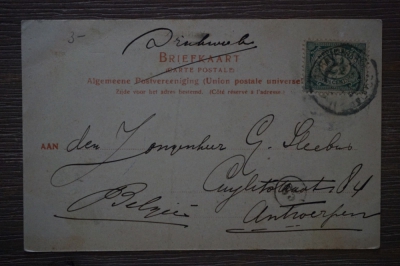 3-
Drukwerk
BRIEFKAART
(CARTE POSTALE)
Algemeene Postvereeniging (Union postale universelle)
Zijde voor het adres bestemd. (Côté réservé à l'adresse.)
AAN den Jongenheer G.
84
België
Antwerpen